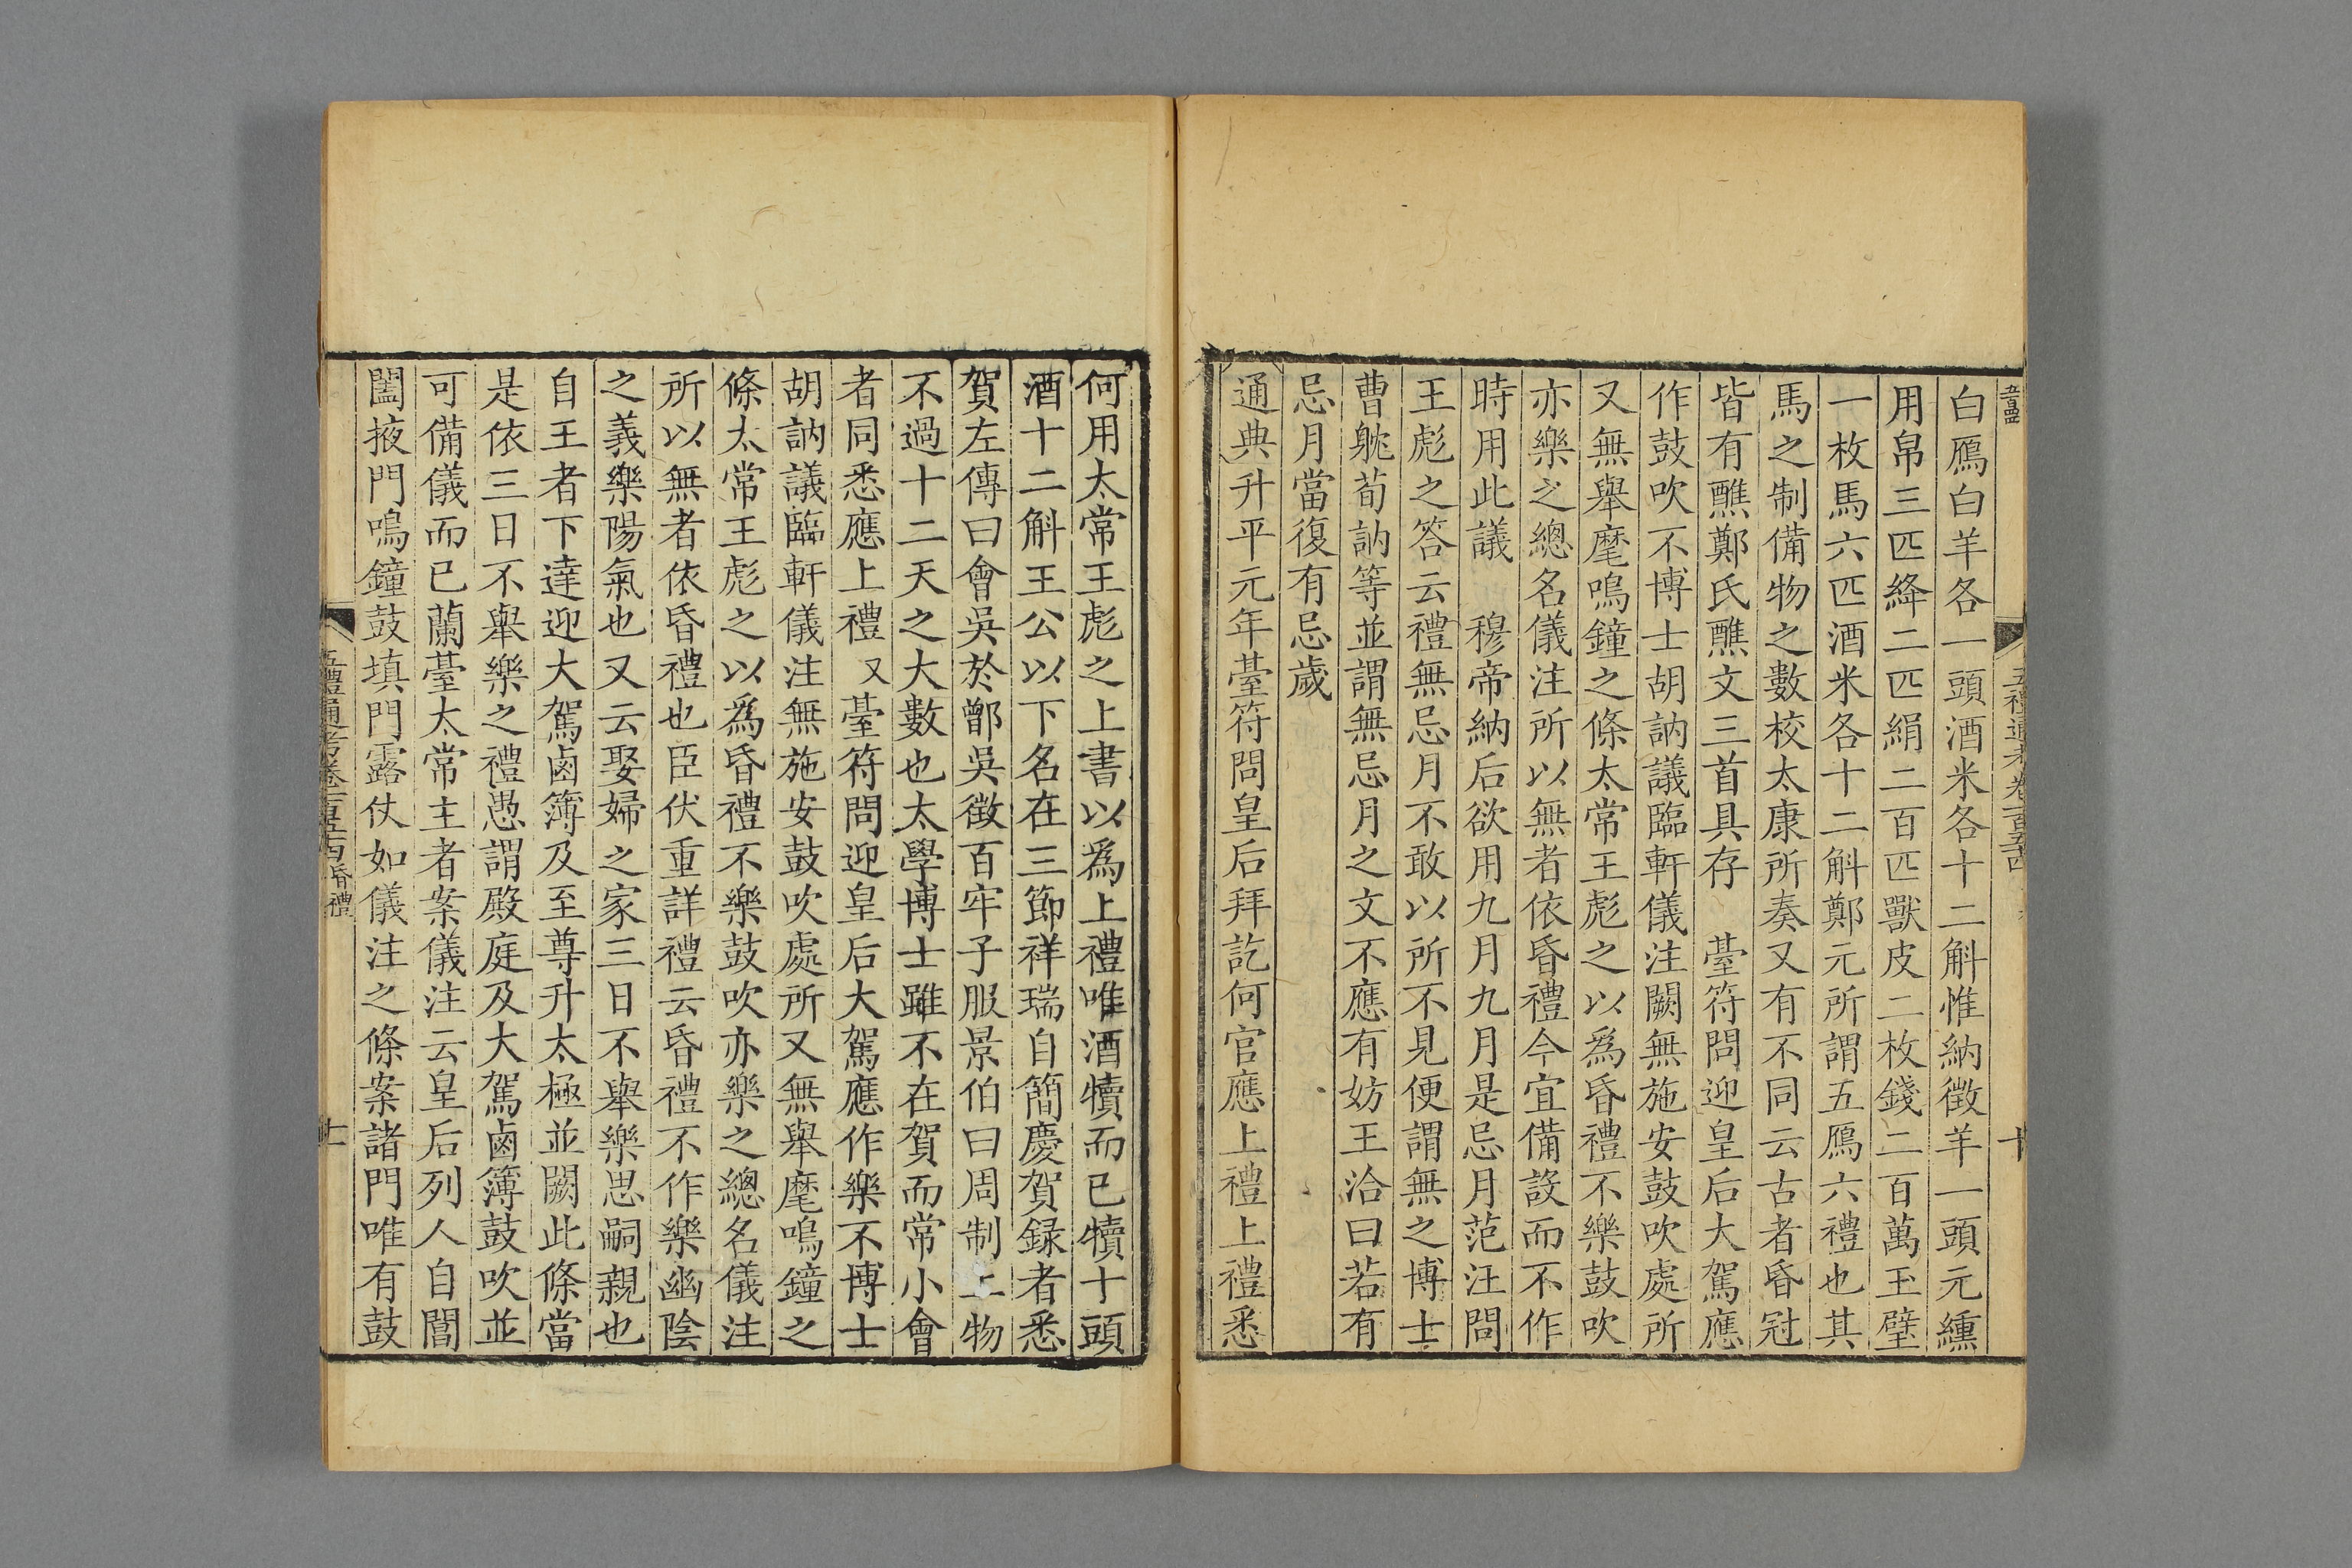 白鴈白羊各一頭酒米各十二斛惟納徵羊一頭元纁
用帛三匹絳二匹絹二百匹獸皮二枚錢二百萬玉璧
一枚馬六匹酒米各十二斛鄭元所謂五鴈六禮也其
馬之制備物之數校太康所奏又有不同云古者昏冠
皆有醮鄭氏醮文三首具存　臺符問迎皇后大駕應
作鼓吹不博士胡訥議臨軒儀注闕無施安鼓吹處所
又無舉麾鳴鐘之條太常王彪之以為昏禮不樂鼓吹
亦樂之總名儀注所以無者依昏禮今宜備設而不作
時用此議　穆帝納后欲用九月九月是忌月范汪問
王彪之答云禮無忌月不敢以所不見便謂無之博士
曹躭荀訥等並謂無忌月之文不應有妨王洽曰若有
忌月當復有忌歲
通典升平元年臺符問皇后拜訖何官應上禮上禮悉
何用太常王彪之上書以為上禮唯酒犢而已犢十頭
酒十二斛王公以下名在三節祥瑞自簡慶賀録者悉
賀左傳曰會吳於鄫吳徵百牢子服景伯曰周制上物
不過十二天之大數也太學博士雖不在賀而常小會
者同悉應上禮　又臺符問迎皇后大駕應作樂不博士
胡訥議臨軒儀注無施安鼓吹處所又無舉麾鳴鐘之
條太常王彪之以爲昏禮不樂鼓吹亦樂之總名儀注
所以無者依昏禮也臣伏重詳禮云昏禮不作樂幽陰
之義樂陽氣也又云娶婦之家三日不舉樂思嗣親也
自王者下達迎大駕鹵簿及至尊升太極並闕此條當
是依三日不舉樂之禮愚謂殿庭及大駕鹵簿鼓吹並
可備儀而已蘭臺太常主者案儀注云皇后列人自閶
闔掖門鳴鐘鼓填門露仗如儀注之條案諸門唯有鼓
五禮通考卷一百五十四 昏禮